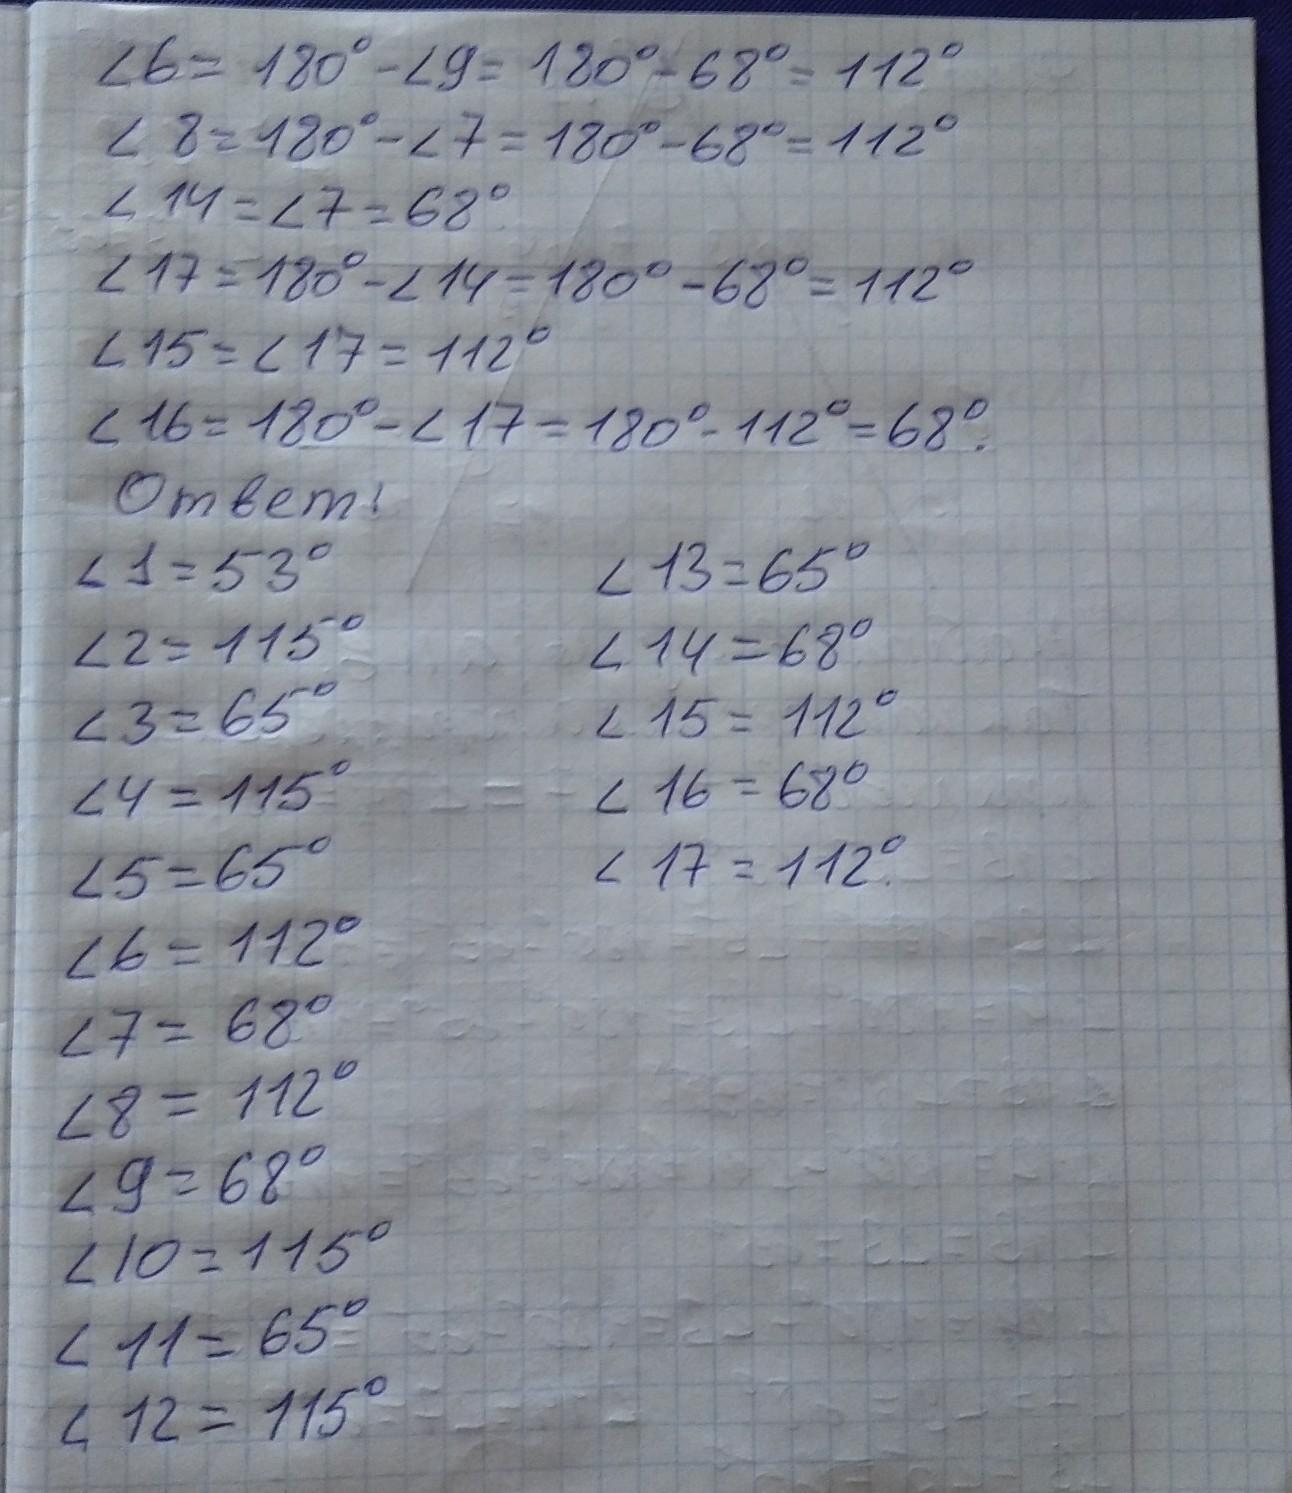 ∠6=180°-∠9=180°-68°=112°
∠8=180°-∠7=180°-68°=112°
∠14=∠7=68°
∠17=180°-∠14=180°-68°=112°
∠15=∠17=112°
∠16=180°-∠17=180°-112°=68°.
Ответ:
∠1=53°
∠2=115°
∠3=65°
∠4=115°
∠5=65°
∠6=112°
∠7=68°
∠8=112°
∠9=68°
∠10=115°
∠11=65°
∠12=115°
∠13=65°
∠14=68°
∠15=112°
∠16=68°
∠17=112°.